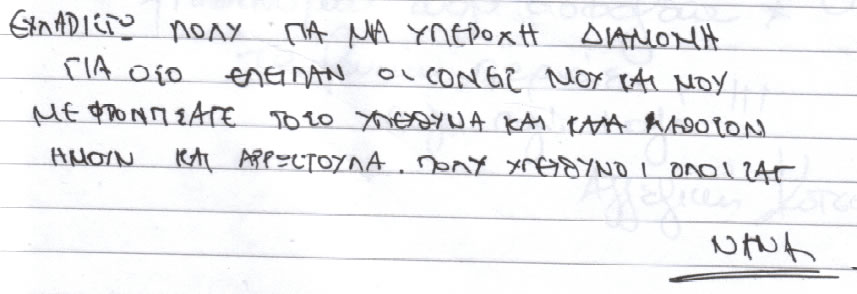 ΕΥΧΑΡΙΣΤΩ ΠΟΛΥ ΓΙΑ ΜΙΑ ΥΠΕΡΟΧΗ ΔΙΑΜΟΝΗ
ΓΙΑ ΟΣΟ ΕΛΕΙΠΑΝ ΟΙ ΓΟΝΕΙΣ ΜΟΥ ΚΑΙ ΜΟΥ
ΜΕ ΦΡΟΝΤΙΣΑΤΕ ΤΟΣΟ ΥΠΕΥΘΥΝΑ ΚΑΙ ΚΑΛΑ ΚΑΘΟΣΟΝ
ΗΜΟΥΝ ΚΑΙ ΑΡΡΩΣΤΟΥΛΑ. ΠΟΛΥ ΥΠΕΥΘΥΝΟΙ ΟΛΟΙ ΣΑΣ
ΝΑΝΑ